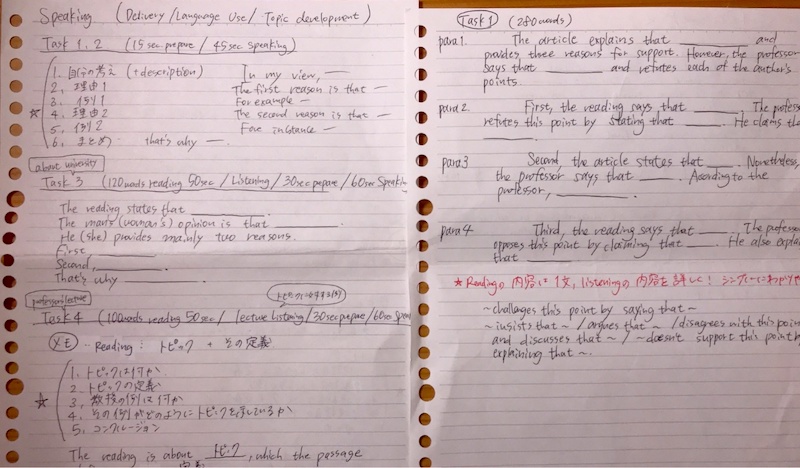 Speaking (Delivery / Language Use / Topic development)
Task 1, 2 (15 sec prepare / 45 sec speaking)
1. 自分の考え (+description) In my view, ―
2. 理由1 The first reason is that ―
3. 例1 For example ―
★ 4. 理由2 The second reason is that ―
5. 例2 For instance ―
6. まとめ that's why ―
about university
Task 3 (120words reading 50sec / Listening / 30sec prepare / 60sec Speaking
The reading states that ______
The man's (woman's) opinion is that ______
He (she) provides mainly two reasons.
First ______
Second, ______
That's why ______
professor lecture
トピックに対する例
Task 4 (100words reading 50sec / lecture listening / 30sec prepare / 60sec Spea
メモ ・・ Reading : トピック + その定義
1. トピックは何か
2. トピックの定義
★ 3. 教授の例は何か
4. その例がどのようにトピックを示しているか
5. コンクルージョン
The reading is about トピック, which the passage
定義
Task 1 (280words)
para1. The article explains that ______ and
provides three reasons for support. However, the professor
says that ______ and refutes each of the author's
points.
para2. First, the reading says that ______. The profess
refutes this point by stating that ______. He claims tha
______.
para3 Second, the article states that ______. Nonetheless,
the professor says that ______. According to the
professor, ______.
para4 Third, the reading says that ______. The professo
opposes this point by claiming that ______. He also explai
that ______.
★ Readingの内容は1文, listeningの内容を詳しく! シンプルにわかりや
~challenges this point by saying that ~
~ insists that ~ / argues that ~ / disagrees with this poin
and discusses that ~ / ~ doesn't support this point by
explaining that ~.